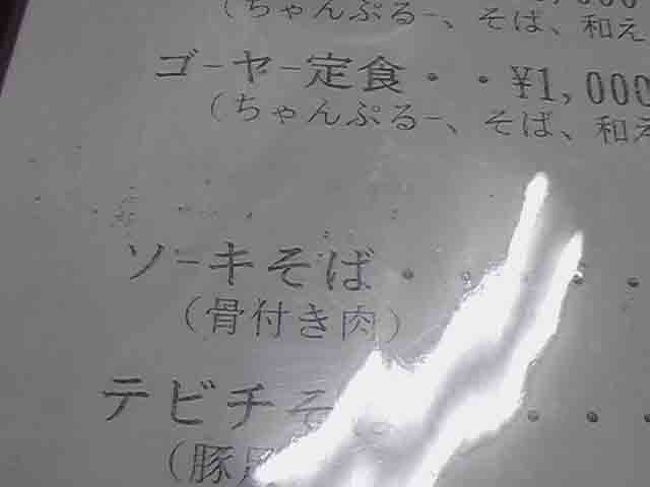 (ちゃんぷるー、そば、和え
ゴーヤー定食・・¥1,000
(ちゃんぷるー、そば、和え
ソーキそば・・・・
(骨付き肉)
テビチそ ・・
(豚足